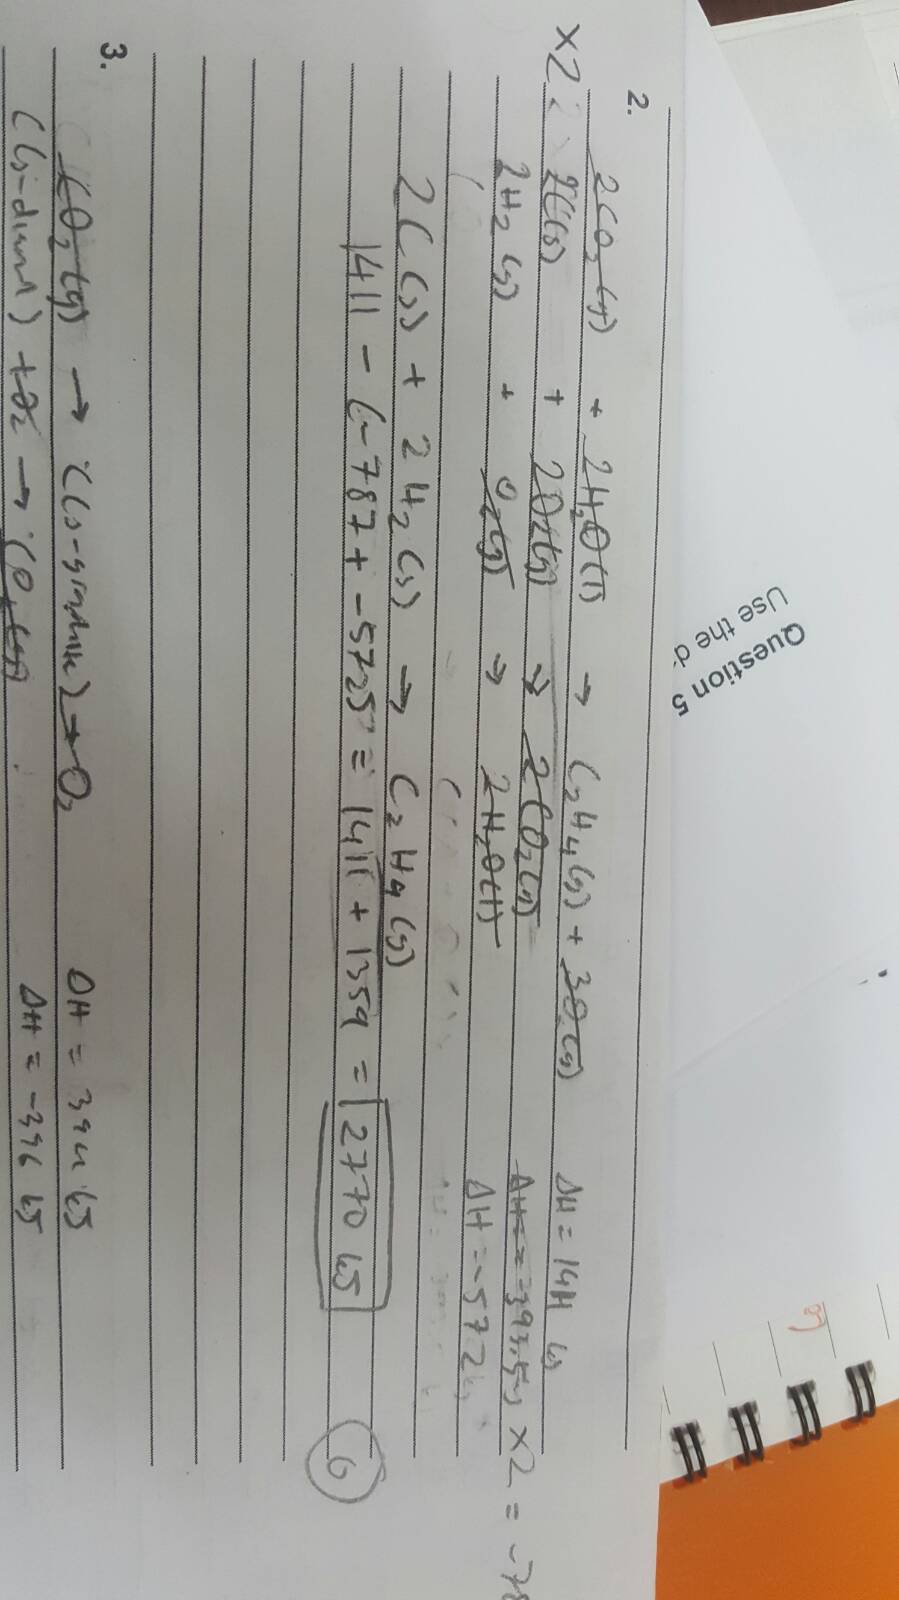 2.
2CO2 (g) + 2H2O(l) → C2H4(g) + 3O2(g) ΔH = 1411 kJ
x2 2C(s) + 2O2(g) → 2CO2(g) ΔH = -393.5 kJ x2 = -78
2H2 (g) + O2(g) → 2H2O(l) ΔH = -572 kJ
2C(s) + 2H2(g) → C2H4(g)
1411 - (-787 + -572) = 1411 + 1359 = 2770 kJ
6
3.
CO2(g) → C(s-graphite) + O2 ΔH = 394 kJ
C(s-diam) + O2 → CO2(g) ΔH = -396 kJ
Question 5
Use the d